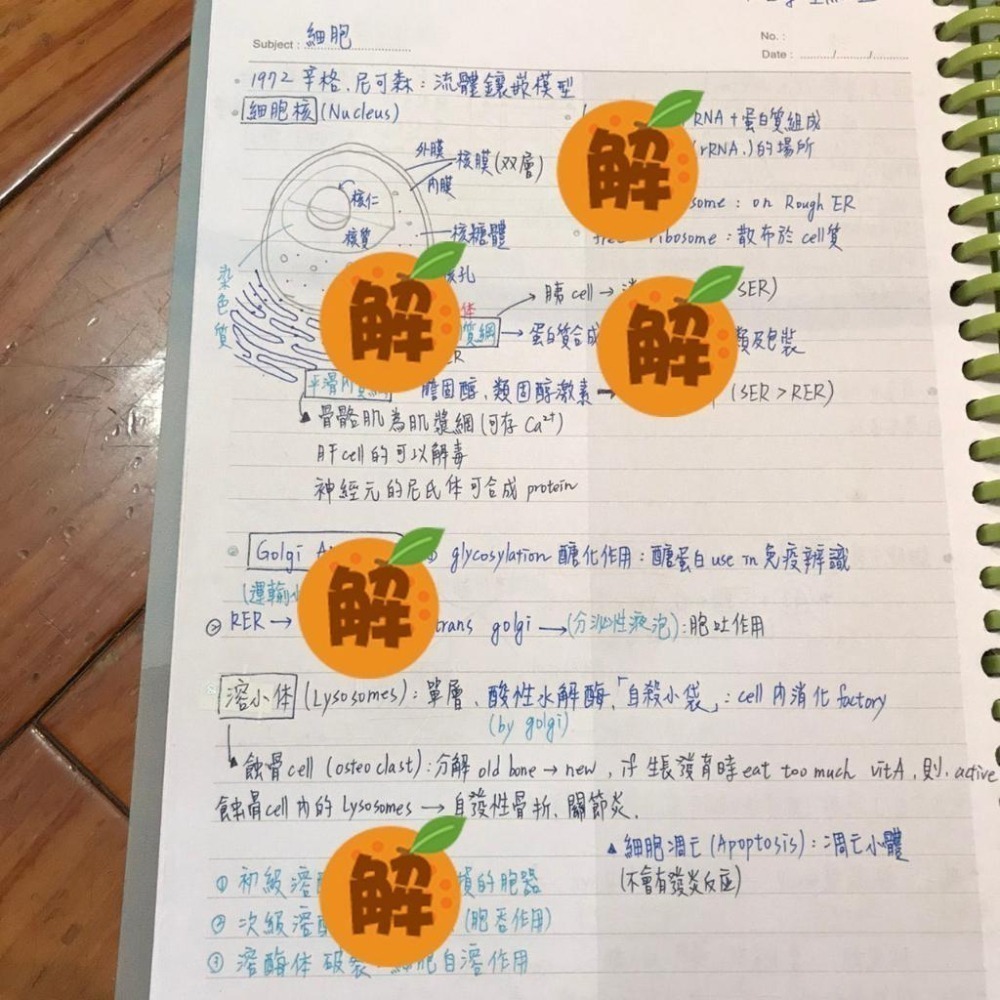 Subject : 細胞
No. :
Date : ......../......../........
1972 辛格、尼可森：流體鑲嵌模型
細胞核 (Nucleus)
RNA + 蛋白質組成
(rRNA.) 的場所
some : on Rough ER
ribosome : 散布於 cell質
外膜
核膜 (双層)
內膜
核仁
核質
核糖體
孔
染色質
体
胰 cell →
(SER)
質網 → 蛋白質合成
類及包裝
ER
平滑內
膽固醇、類固醇激素 →
(SER > RER)
▲ 骨骼肌為肌漿網 (可存 Ca²⁺)
肝cell的可以解毒
神經元的尼氏体可合成 protein
Golgi
glycosylation 醣化作用：醣蛋白 use in 免疫辨識
(運輸小
② RER →
trans golgi → (分泌性液泡) : 胞吐作用
溶小体 (Lysosomes) : 單層、酸性水解酶、「自殺小袋」: cell 內消化 factory
(by golgi)
▲ 蝕骨cell (osteoclast) : 分解 old bone → new , if 生長發育時 eat too much vitA , 則 . active
蝕骨cell內的 Lysosomes → 自發性骨折、關節炎.
▲ 細胞凋亡 (Apoptosis) : 凋亡小體
(不會有發炎反應)
① 初級溶
的胞器
② 次級溶
(胞吞作用)
③ 溶酶体 破裂
細胞自溶作用
解
解
解
解
解